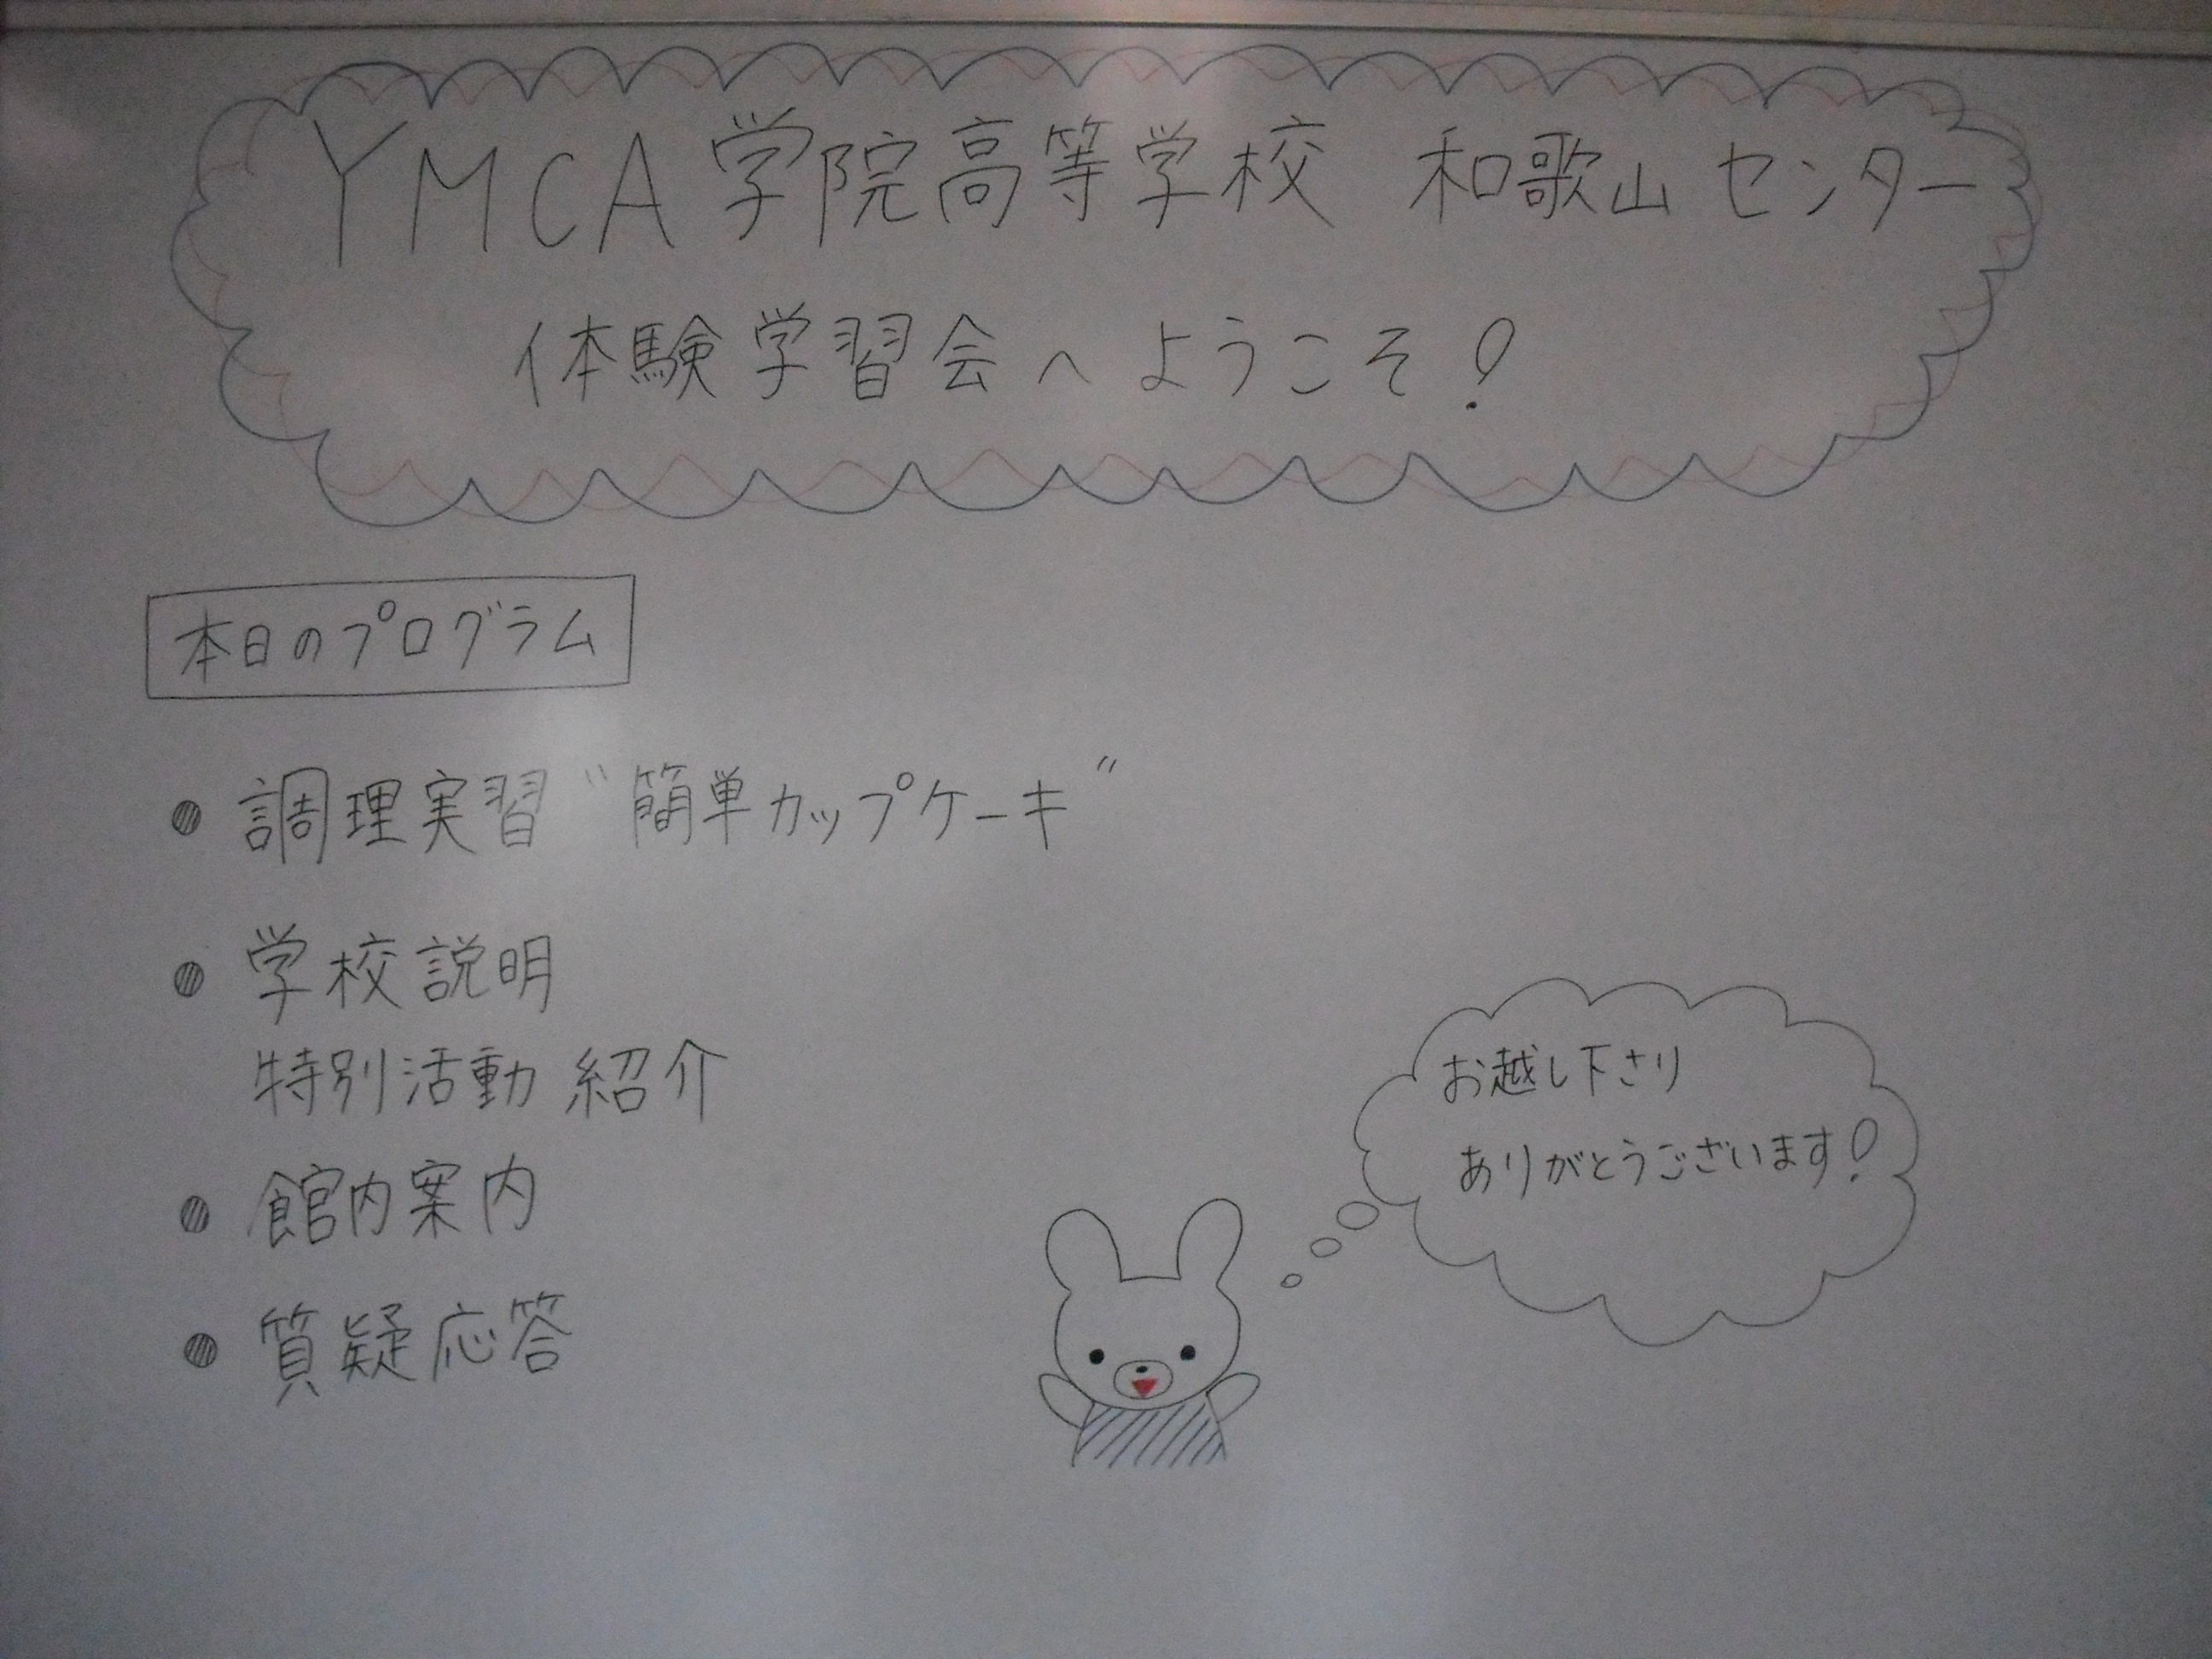 YMCA学院高等学校 和歌山センター
体験学習会へようこそ!
本日のプログラム
● 調理実習〝簡単カップケーキ〟
● 学校説明
特別活動 紹介
● 館内案内
● 質疑応答
お越し下さり
ありがとうございます!